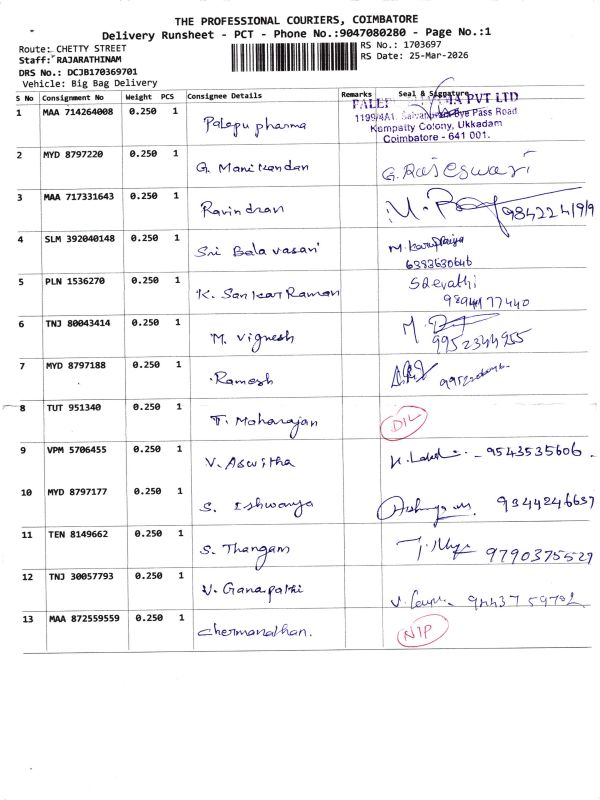 THE PROFESSIONAL COURIERS, COIMBATORE
Delivery Runsheet - PCT - Phone No.:9047080280 - Page No.:1
Route: CHETTY STREET
Staff: RAJARATHINAM
DRS No.: DCJB170369701
Vehicle: Big Bag Delivery
RS No.: 1703697
RS Date: 25-Mar-2026
S No Consignment No Weight PCS Consignee Details Remarks Seal & Signature
1 MAA 714264008 0.250 1 Palepu pharma
PVT LTD
1199/4A1, Bye Pass Road
Kempatty Colony, Ukkadam
Coimbatore - 641 001.
2 MYD 8797220 0.250 1 G. Manikandan G. Rajeswari
3 MAA 717331643 0.250 1 Ravindran
4 SLM 392040148 0.250 1 Sri Bala vasari
6383630646
5 PLN 1536270 0.250 1 K. Sankar Raman
6 TNJ 80043414 0.250 1 M. Vignesh
9952344955
7 MYD 8797188 0.250 1 Ramesh
8 TUT 951340 0.250 1 T. Moharajan DIL
9 VPM 5706455 0.250 1 V. Aswitha 9543535606
10 MYD 8797177 0.250 1 S. Ishwarya 9344246637
11 TEN 8149662 0.250 1 S. Thangam 9790375529
12 TNJ 30057793 0.250 1 V. Ganapathi
13 MAA 872559559 0.250 1 Chermanathan. NIP